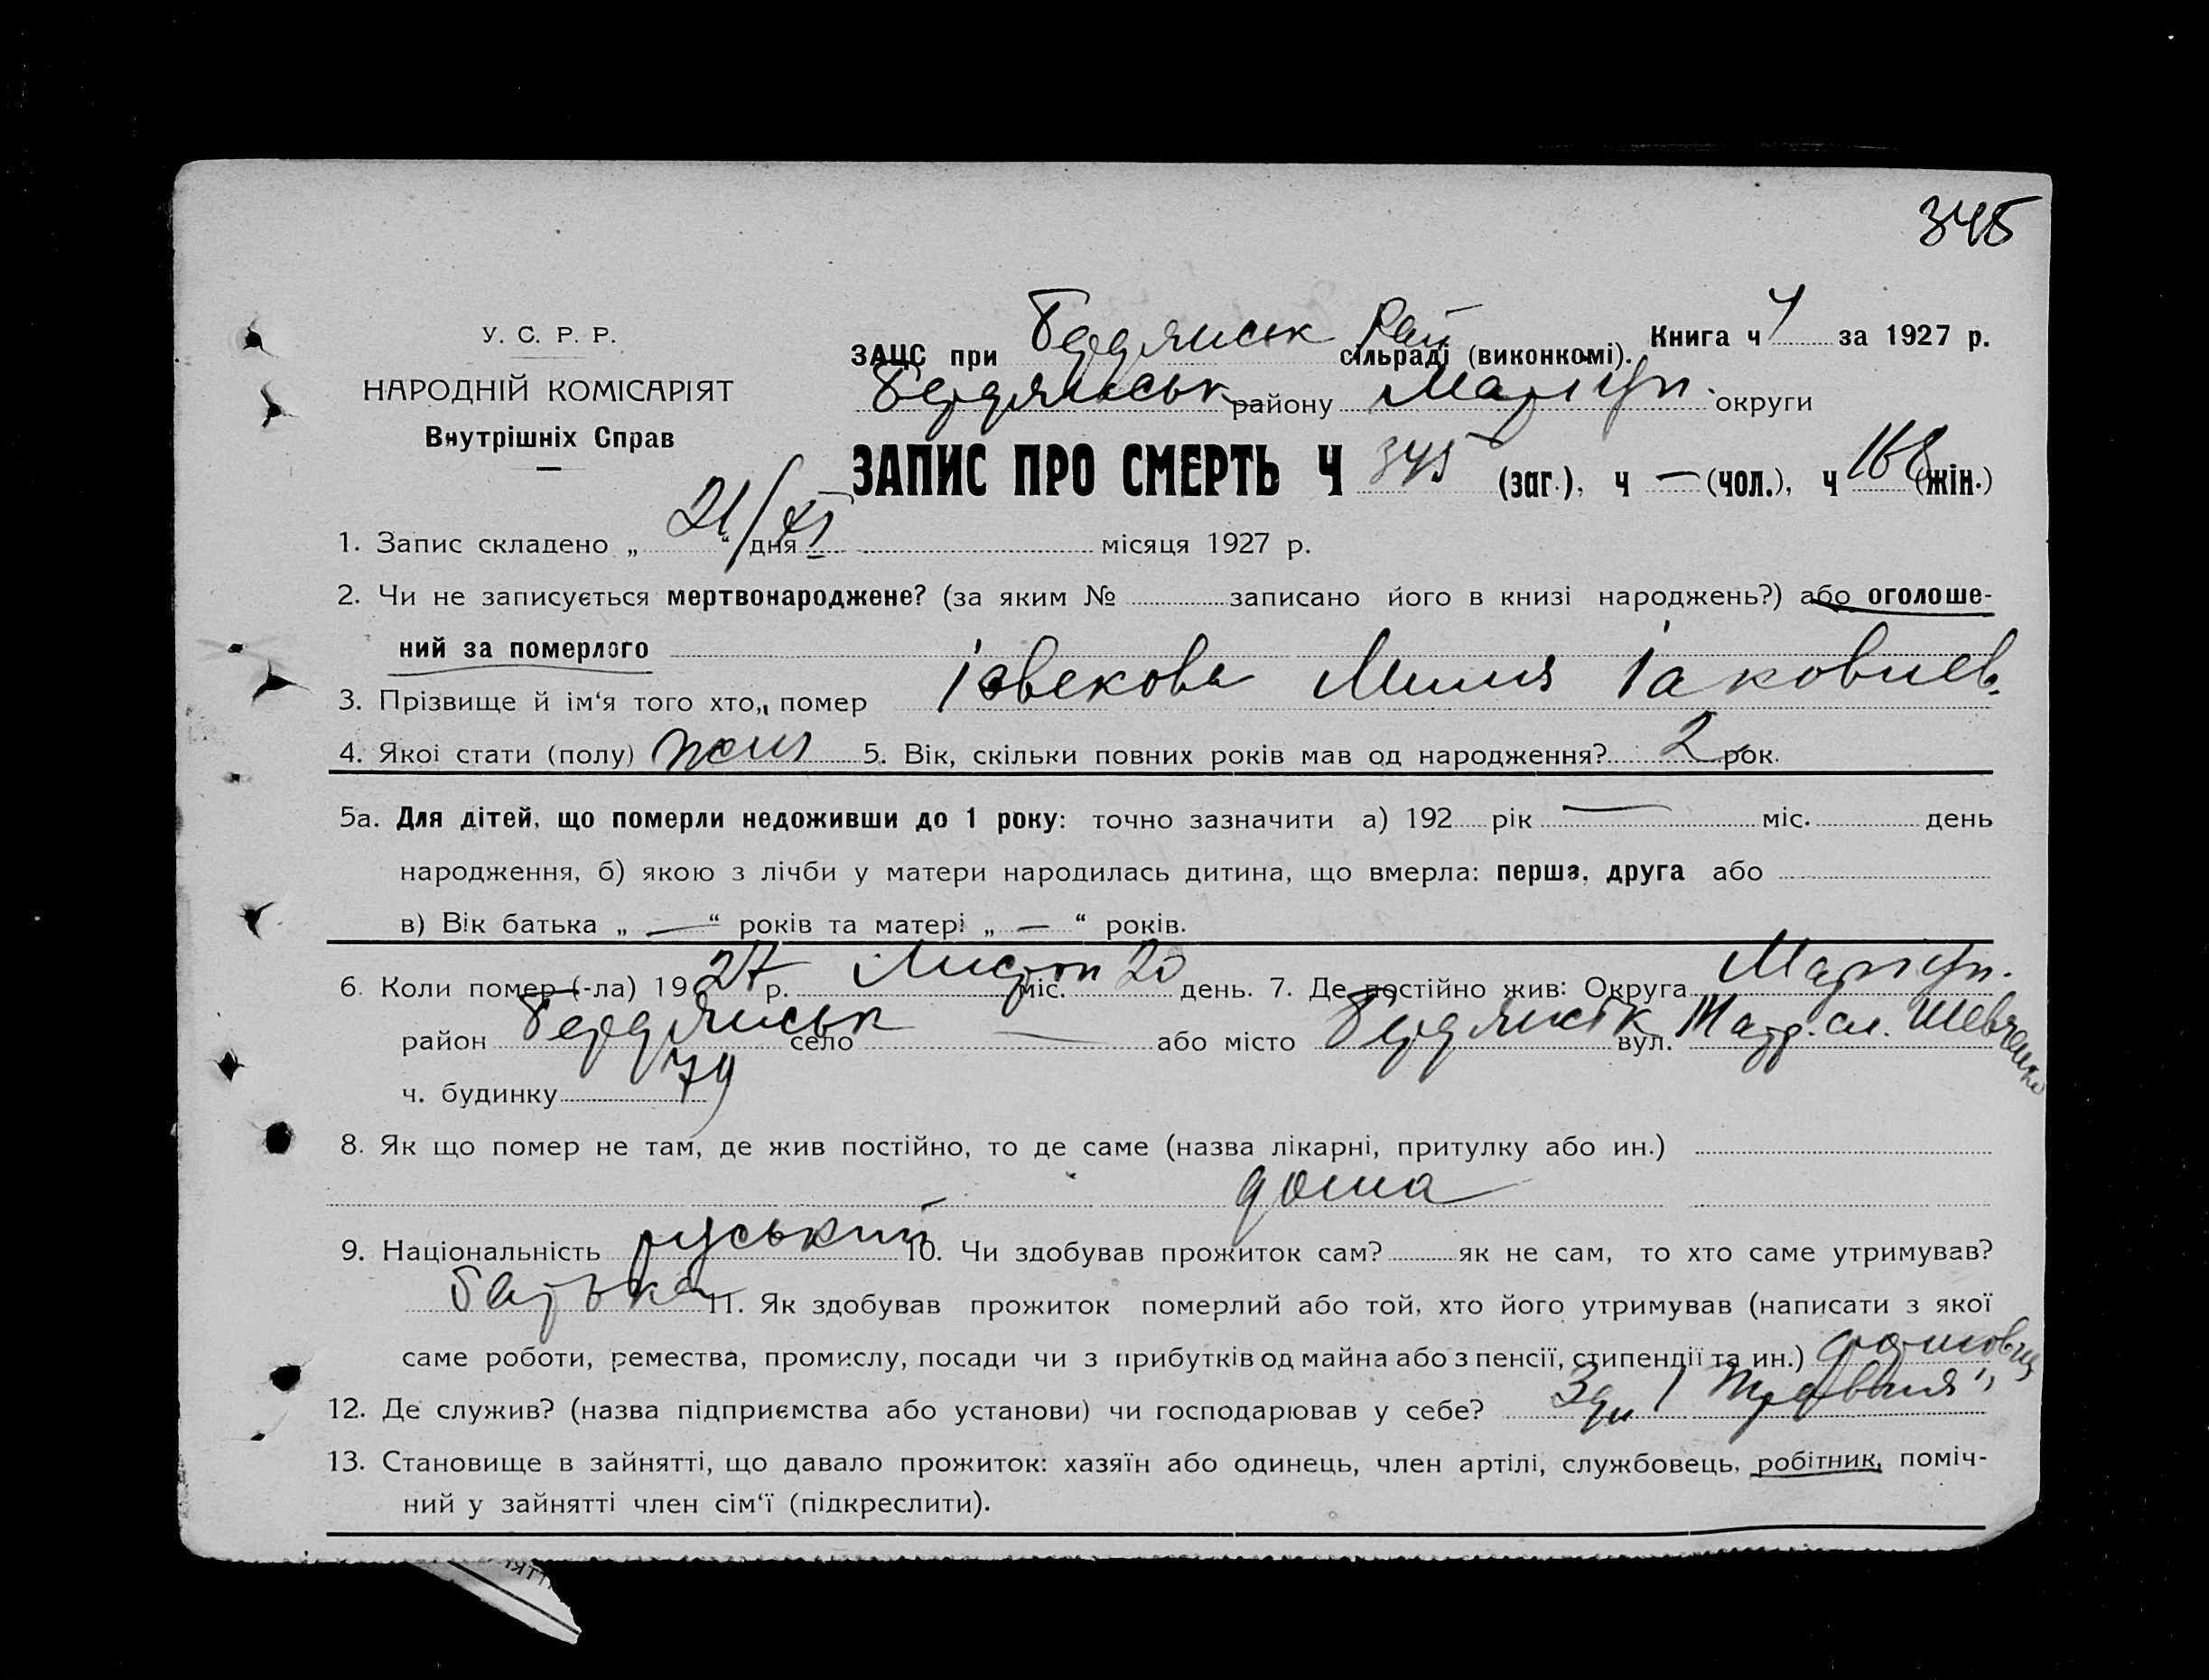 345
У. С. Р. Р.
НАРОДНІЙ КОМІСАРІЯТ
Внутрішніх Справ
ЗАЦС при Бердянськ Рай сільраді (виконкомі). Книга ч 4 за 1927 р.
Бердянськ району Маріуп. округи
ЗАПИС ПРО СМЕРТЬ Ч 345 (заг.), ч — (чол.), ч 168 (жін.)
1. Запис складено „ 21/XI “ дня місяця 1927 р.
2. Чи не записується мертвонароджене? (за яким № записано його в книзі народжень?) або оголоше-
ний за померлого
3. Прізвище й ім‘я того хто„ помер Іовекова Яковлев.
4. Якої стати (полу) жін 5. Вік, скільки повних років мав од народження? 2 рок.
5а. Для дітей, що померли недоживши до 1 року: точно зазначити а) 192 рік — міс. день
народження, б) якою з лічби у матери народилась дитина, що вмерла: перша, друга або
в) Вік батька „ — “ років та матері „ — “ років.
6. Коли помер (-ла) 1927 р. Листоп міс. 20 день. 7. Де постійно жив: Округа Маріуп.
район Бердянськ село — або місто Бердянськ вул. сл. Шевченко
ч. будинку 79
8. Як що помер не там, де жив постійно, то де саме (назва лікарні, притулку або ин.)
дома
9. Національність руський 10. Чи здобував прожиток сам? як не сам, то хто саме утримував?
батько 11. Як здобував прожиток померлий або той, хто його утримував (написати з якої
саме роботи, ремества, промислу, посади чи з прибутків од майна або з пенсії, стипендії та ин.)
12. Де служив? (назва підприємства або установи) чи господарював у себе? 1 Травня"
13. Становище в зайнятті, що давало прожиток: хазяїн або одинець, член артілі, службовець, робітник, поміч-
ний у зайнятті член сім‘ї (підкреслити).